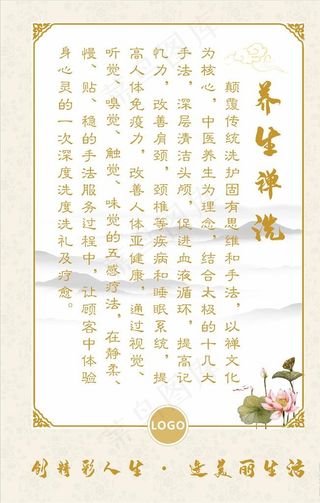 养生禅洗
颠覆传统洗护固有思维和手法，以禅文化
为核心，中医养生为理念，结合太极的十几大
手法，深层清洁头颅，促进血液循环，提高记
忆力，改善肩颈，颈椎等疾病和睡眠系统，提
高人体免疫力，改善人体亚健康，通过视觉、
听觉、嗅觉、触觉、味觉的五感疗法，在静柔、
慢、贴、稳的手法服务过程中，让顾客中体验
身心灵的一次深度洗度洗礼及疗愈。
LOGO
创精彩人生·造美丽生活